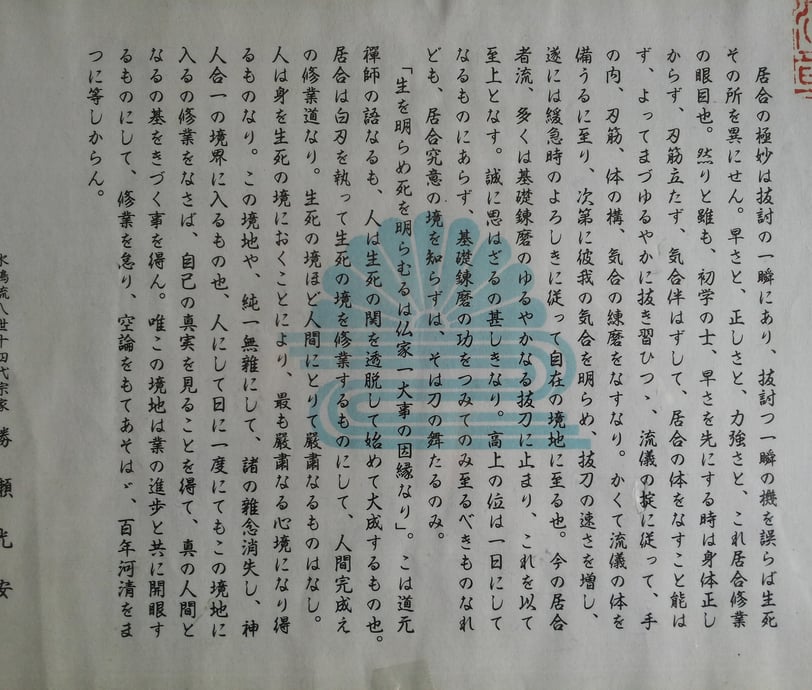 居合の極妙は抜討の一瞬にあり、抜討つ一瞬の機を誤らば生死
その所を異にせん。早さと、正しさと、力強さと、これ居合修業
の眼目也。然りと雖も、初学の士、早さを先にする時は身体正し
からず、刃筋立たず、気合伴はずして、居合の体をなすこと能は
ず、よってまづゆるやかに抜き習ひつゝ、流儀の掟に従って、手
の内、刃筋、体の構、気合の練磨をなすなり。かくて流儀の体を
備うるに至り、次第に彼我の気合を明らめ、抜刀の速さを増し、
遂には緩急時のよろしきに従って自在の境地に至る也。今の居合
者流、多くは基礎錬磨のゆるやかなる抜刀に止まり、これを以て
至上となす。誠に思はざるの甚しきなり。高上の位は一日にして
なるものにあらず、基礎錬磨の功をつみてのみ至るべきものなれ
ども、居合究意の境を知らずは、そは刀の舞たるのみ。
「生を明らめ死を明らむるは仏家一大事の因縁なり」。こは道元
禅師の語なるも、人は生死の関を透脱して始めて大成するもの也。
居合は白刃を執って生死の境を修業するものにして、人間完成え
の修業道なり。生死の境ほど人間にとりて厳粛なるものはなし。
人は身を生死の境におくことにより、最も厳粛なる心境になり得
るものなり。この境地や、純一無雑にして、諸の雑念消失し、神
人合一の境界に入るもの也、人にして日に一度にてもこの境地に
入るの修業をなさば、自己の真実を見ることを得て、真の人間と
なるの基をきづく事を得ん。唯この境地は業の進歩と共に開眼す
るものにして、修業を怠り、空論をもてあそばゞ、百年河清をま
つに等しからん。
水鴎流八世十四代宗家 勝瀬光安